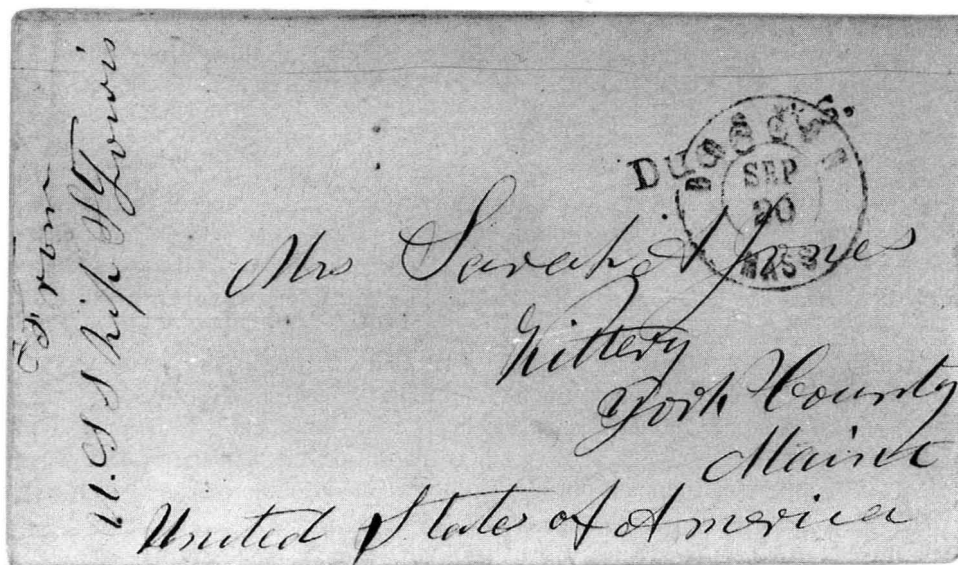 From
U.S Ship St Louis
Due
SEP
20
MASS
Mrs Sarah A Jones
Kittery
York County
Maine
United State of America